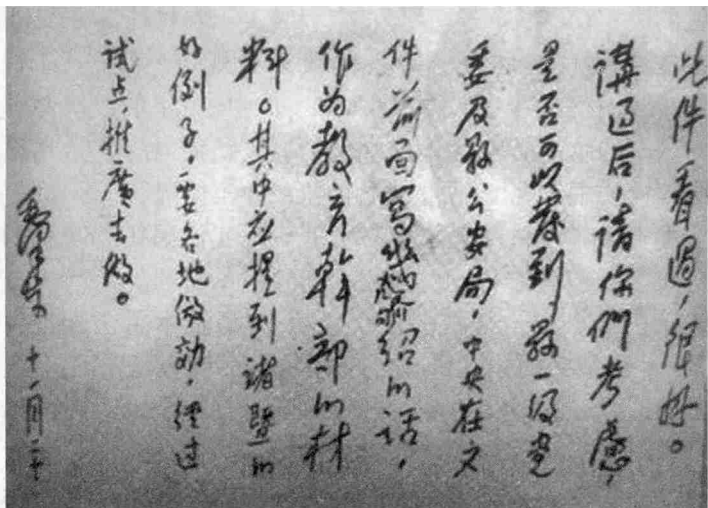 此件看過,很好。
講过后,請你們考慮,
是否可以發到县一级党
委及县公安局,中央在文
件前面寫幾句介紹的话,
作为教育幹部的材
料。其中应提到诸暨的
好例子,要各地倣効,經过
试点,推廣去做。
毛澤東 十一月二十